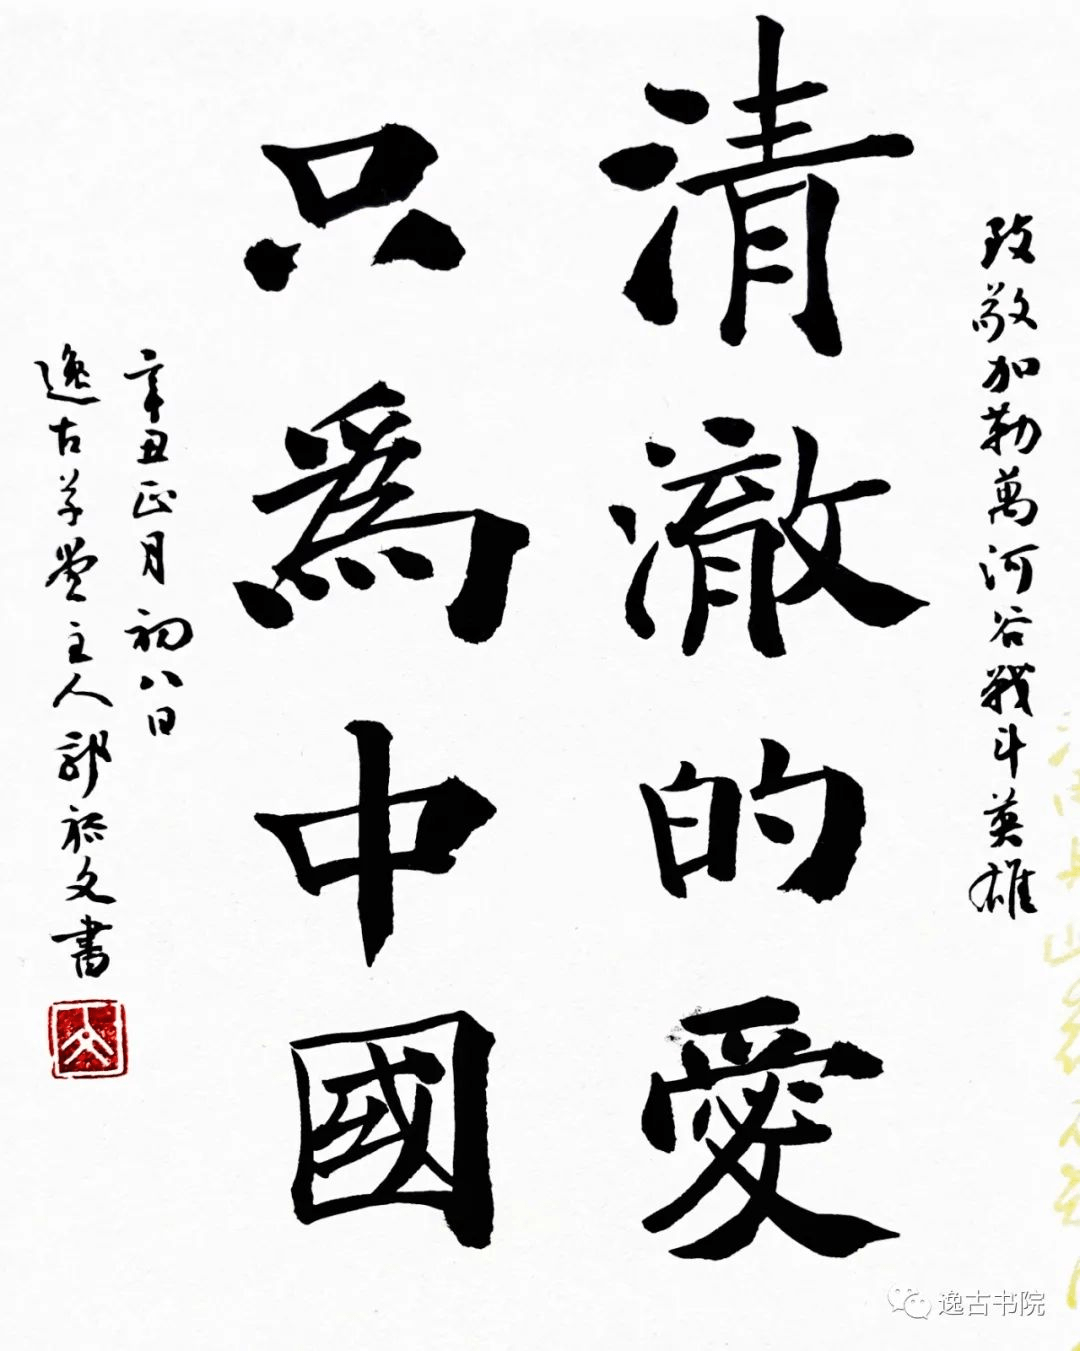 致敬加勒萬河谷戰斗英雄
清澈的愛
只爲中國
辛丑正月初八日
逸古草堂主人郭裕文書
逸古书院